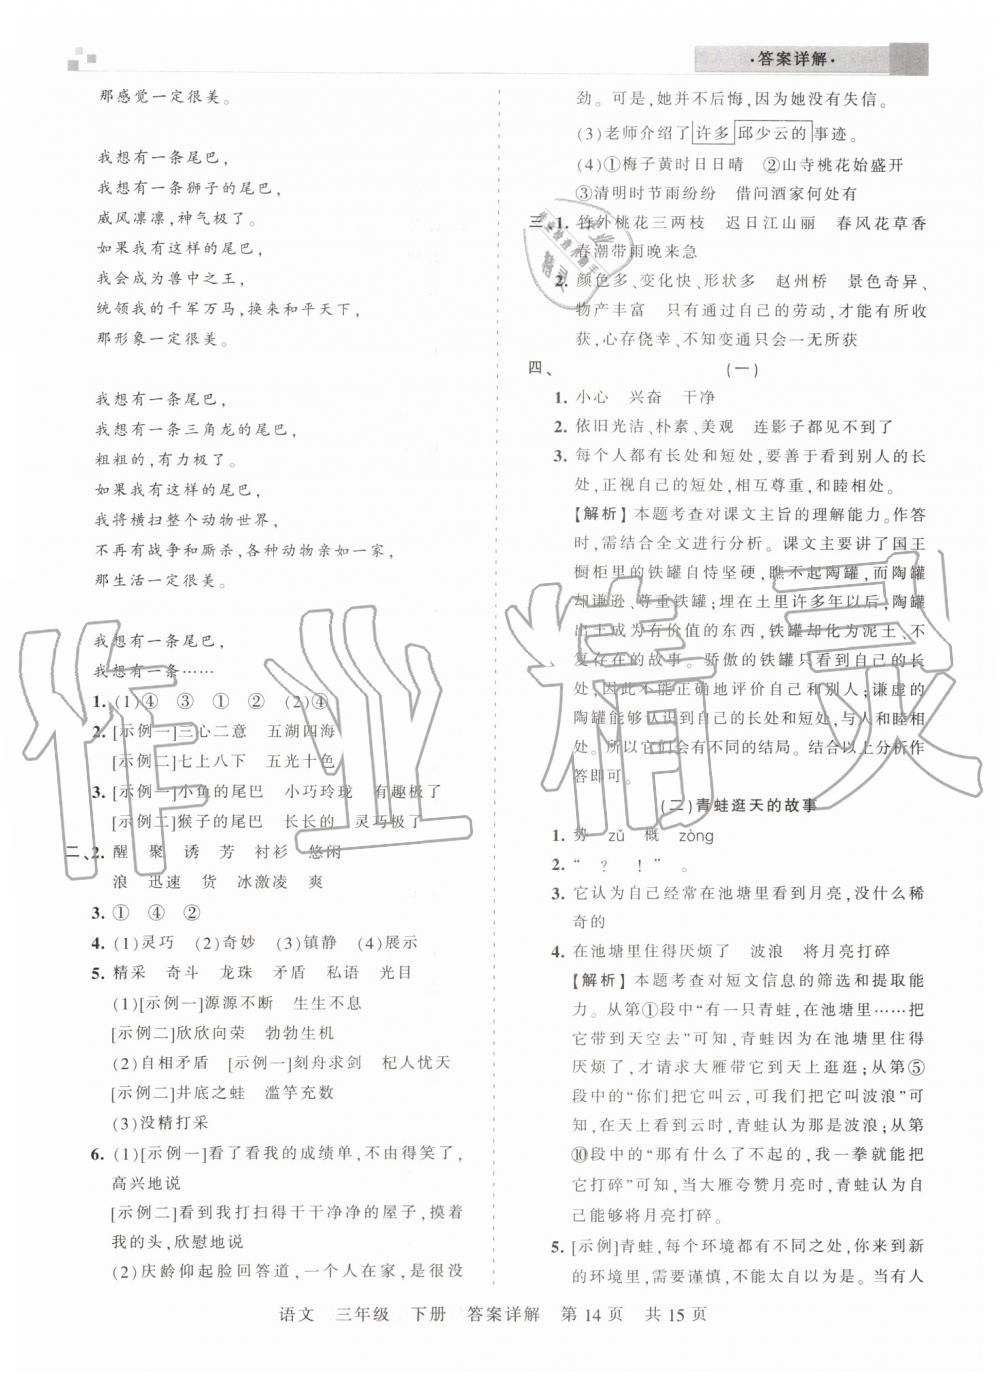 ·答案详解·
那感觉一定很美。
我想有一条尾巴，
我想有一条狮子的尾巴，
威风凛凛，神气极了。
如果我有这样的尾巴，
我会成为兽中之王，
统领我的千军万马，换来和平天下，
那形象一定很美。
我想有一条尾巴，
我想有一条三角龙的尾巴，
粗粗的，有力极了。
如果我有这样的尾巴，
我将横扫整个动物世界，
不再有战争和厮杀，各种动物亲如一家，
那生活一定很美。
我想有一条尾巴，
我想有一条……
1. (1)④ ③ ① ② (2)④
2. [示例一]三心二意 五湖四海
[示例二]七上八下 五光十色
3. [示例一]小鱼的尾巴 小巧玲珑 有趣极了
[示例二]猴子的尾巴 长长的 灵巧极了
二、2. 醒 聚 诱 芳 衬衫 悠闲
浪 迅速 货 冰激凌 爽
3. ① ④ ②
4. (1)灵巧 (2)奇妙 (3)镇静 (4)展示
5. 精采 奇斗 龙珠 矛盾 私语 光目
(1)[示例一]源源不断 生生不息
[示例二]欣欣向荣 勃勃生机
(2)自相矛盾 [示例一]刻舟求剑 杞人忧天
[示例二]井底之蛙 滥竽充数
(3)没精打采
6. (1)[示例一]看了看我的成绩单，不由得笑了，
高兴地说
[示例二]看到我打扫得干干净净的屋子，摸着
我的头，欣慰地说
(2)庆龄仰起脸回答道，一个人在家，是很没
劲。可是，她并不后悔，因为她没有失信。
(3)老师介绍了许多邱少云的事迹。
(4)①梅子黄时日日晴 ②山寺桃花始盛开
③清明时节雨纷纷 借问酒家何处有
三、1. 竹外桃花三两枝 迟日江山丽 春风花草香
春潮带雨晚来急
2. 颜色多、变化快、形状多 赵州桥 景色奇异、
物产丰富 只有通过自己的劳动，才能有所收
获，心存侥幸、不知变通只会一无所获
四、 (一)
1. 小心 兴奋 干净
2. 依旧光洁、朴素、美观 连影子都见不到了
3. 每个人都有长处和短处，要善于看到别人的长
处，正视自己的短处，相互尊重，和睦相处。
【解析】本题考查对课文主旨的理解能力。作答
时，需结合全文进行分析。课文主要讲了国王
橱柜里的铁罐自恃坚硬，瞧不起陶罐，而陶罐
却谦逊、尊重铁罐；埋在土里许多年以后，陶罐
出土成为有价值的东西，铁罐却化为泥土、不
复存在的故事。骄傲的铁罐只看到自己的长
处，因此不能正确地评价自己和别人；谦虚的
陶罐能够认识到自己的长处和短处，与人和睦相
处。所以它们会有不同的结局。结合以上分析作
答即可。
(二)青蛙逛天的故事
1. 势 zǔ 概 zòng
2. “ ? ! ” 。
3. 它认为自己经常在池塘里看到月亮，没什么稀
奇的
4. 在池塘里住得厌烦了 波浪 将月亮打碎
【解析】本题考查对短文信息的筛选和提取能
力。从第①段中“有一只青蛙，在池塘里……把
它带到天空去”可知，青蛙因为在池塘里住得
厌烦了，才请求大雁带它到天上逛逛；从第⑤
段中的“你们把它叫云，可我们把它叫波浪”可
知，在天上看到云时，青蛙认为是波浪；从第
⑩段中的“那有什么了不起的，我一拳就能把
它打碎”可知，当大雁夸赞月亮时，青蛙认为自
己能够将月亮打碎。
5. [示例]青蛙，每个环境都有不同之处，你来到新
的环境里，需要谨慎，不能太盲目。当有人
语文 三年级 下册 答案详解 第14页 共15页
作业精灵